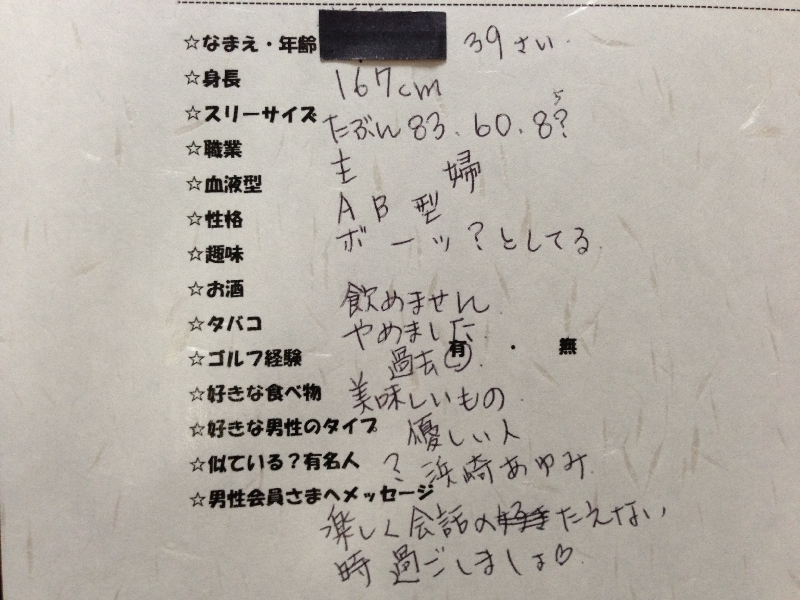 ☆なまえ・年齢 39さい.
☆身長 167cm
☆スリーサイズ たぶん83.60.85?
☆職業 主婦
☆血液型 AB型
☆性格 ボーッ?としてる.
☆趣味
☆お酒 飲めません
☆タバコ やめました
☆ゴルフ経験 過去 有 ・ 無
☆好きな食べ物 美味しいもの.
☆好きな男性のタイプ 優しい人
☆似ている?有名人 ? 浜崎あゆみ.
☆男性会員さまへメッセージ
楽しく会話の たえない
時過ごしましょ♡